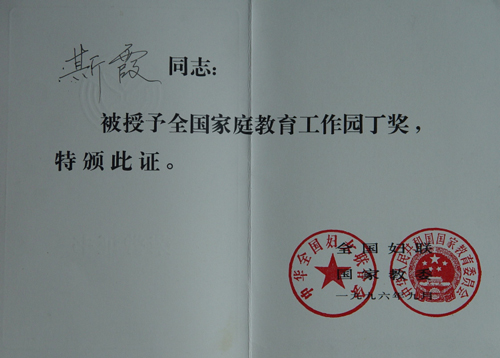 斯霞 同志:
被授予全国家庭教育工作园丁奖，
特颁此证。
全国妇联
国家教委
一九九六年九月
中华全国妇女联合会
中华人民共和国国家教育委员会